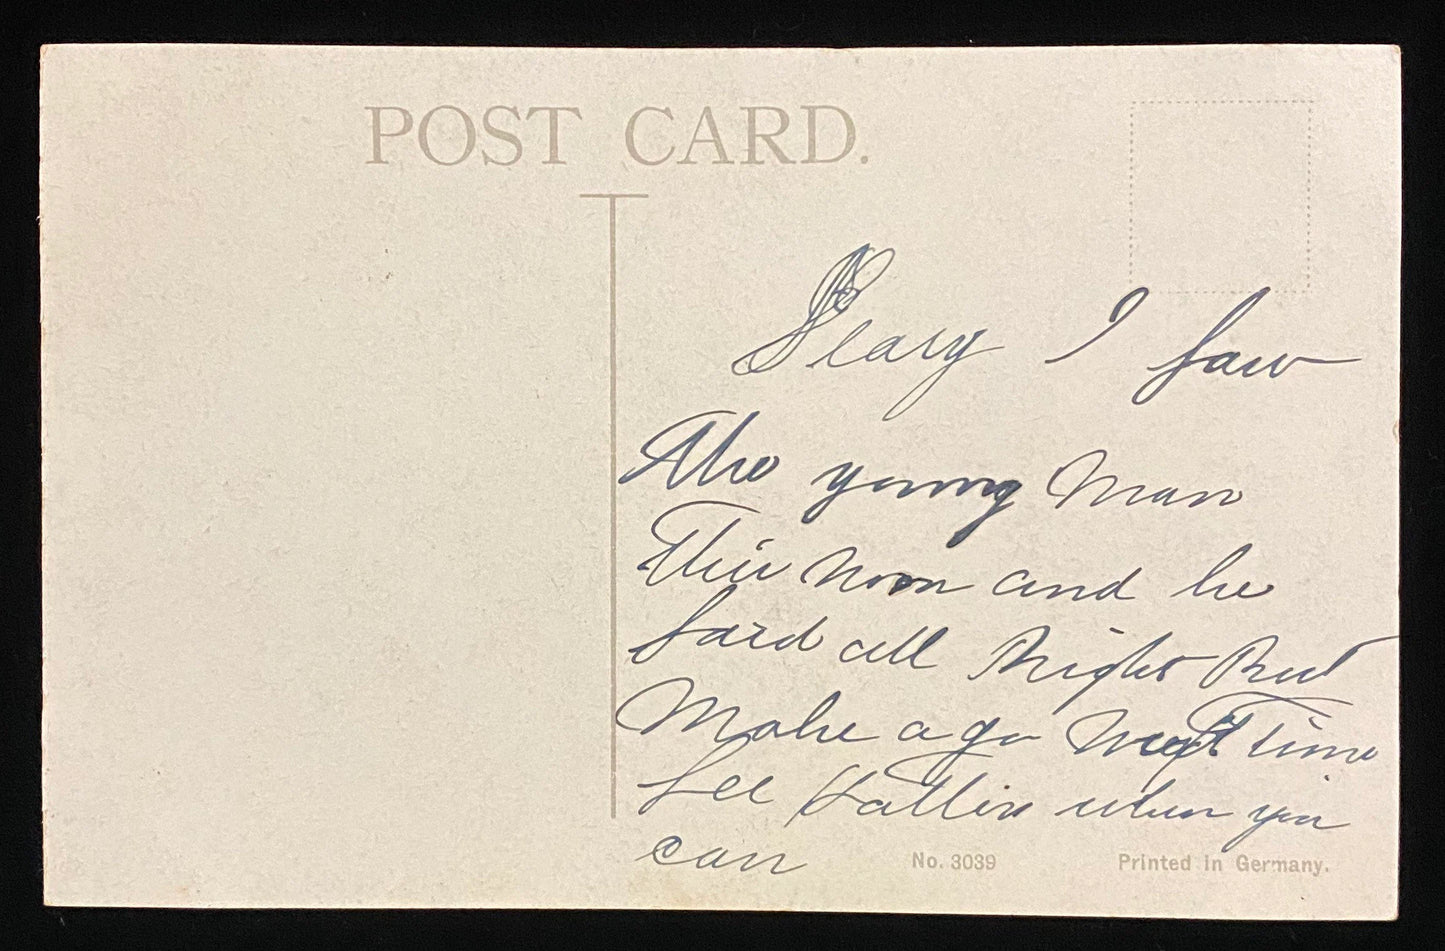 POST CARD.
I saw
the young man
this noon and he
said all right But
Make a go next time
See when you
can
No. 3039
Printed in Germany.